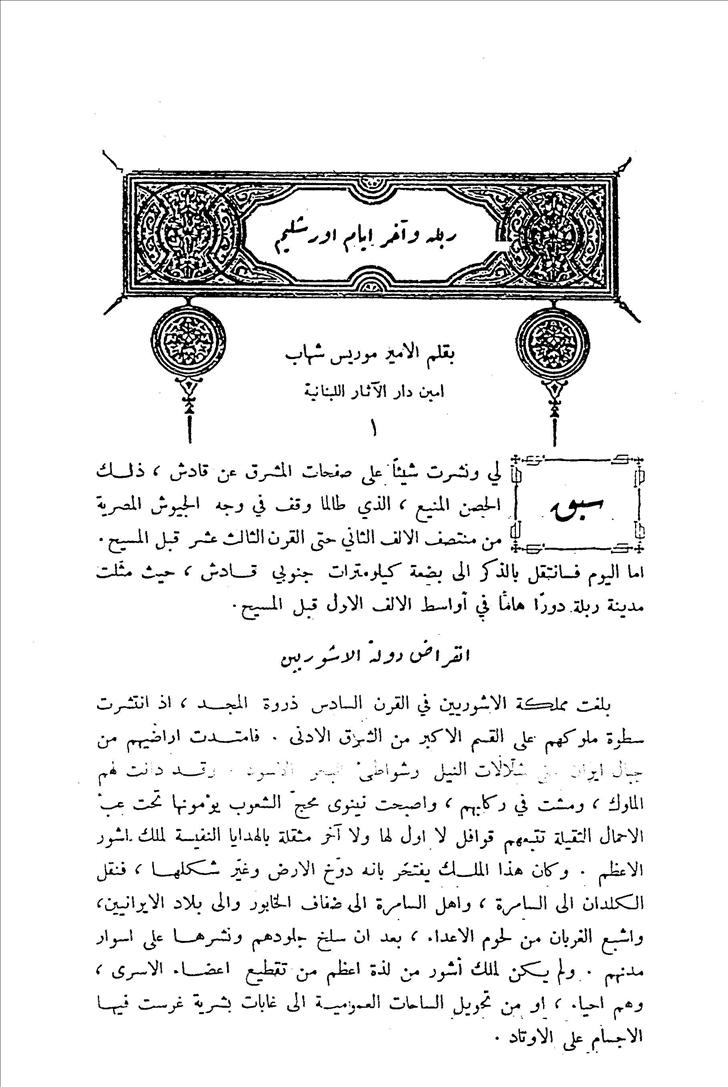 ربله وآخر ايام اورشليم
بقلم الامير موريس شهاب
امين دار الآثار اللبنانية
١
سبق لي ونشرت شيئاً على صفحات المشرق عن قادش ، ذلك
الحصن المنيع ، الذي طالما وقف في وجه الجيوش المصرية
من منتصف الالف الثاني حتى القرن الثالث عشر قبل المسيح .
اما اليوم فسانتقل بالذكر الى بضعة كيلومترات جنوبي قادش ، حيث مثّلت
مدينة ربلة دورًا هامًا في أواسط الالف الاول قبل المسيح .
انقراض دولة الاشوريين
بلغت مملكة الاشوريين في القرن السادس ذروة المجد ، اذ انتشرت
سطوة ملوكهم على القسم الاكبر من الشرق الادنى . فامتدت اراضيهم من
جبال ايران حتى شلّالات النيل وشواطئ البحر الاسود . وقد دانت لهم
الملوك ، ومشت في ركابهم ، واصبحت نينوى محجّ الشعوب يؤمونها تحت عبْ
الاحمال الثقيلة تتبعهم قوافل لا اول لها ولا آخر مثقلة بالهدايا النفيسة لملك اشور
الاعظم . وكان هذا الملك يفتخر بانه دوّخ الارض وغيّر شكلها ، فنقل
الكلدان الى السامرة ، واهل السامرة الى ضفاف الخابور والى بلاد الايرانيين،
واشبع الغربان من لحوم الاعداء ، بعد ان سلخ جلودهم ونشرها على اسوار
مدنهم . ولم يكن لملك أشور من لذة اعظم من تقطيع اعضاء الاسرى ،
وهم احياء ، او من تحويل الساحات العمومية الى غابات بشرية غرست فيها
الاجسام على الاوتاد .